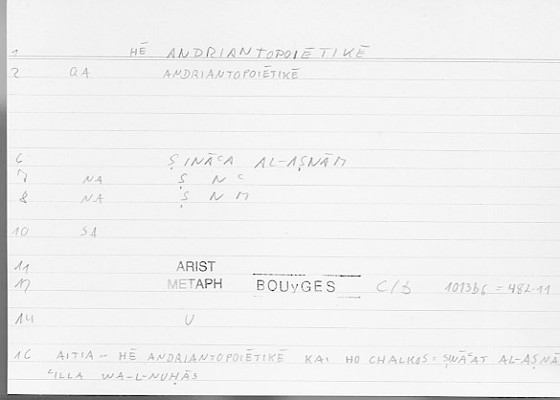 1 HĒ ANDRIANTOPOIĒTIKĒ
2 QA ANDRIANTOPOIĒTIKĒ
6 ṢINĀᶜA AL-AṢNĀM
7 NA Ṣ N ᶜ
8 NA Ṣ N M
10 SA
11 ARIST
12 METAPH BOUyGES C/b 1013b6 = 482-11
14 U
16 AITIA - HĒ ANDRIANTOPOIĒTIKĒ KAI HO CHALKOS = ṢINĀᶜAT AL-AṢNĀ
ᶜILLA WA-L-NUḤĀS